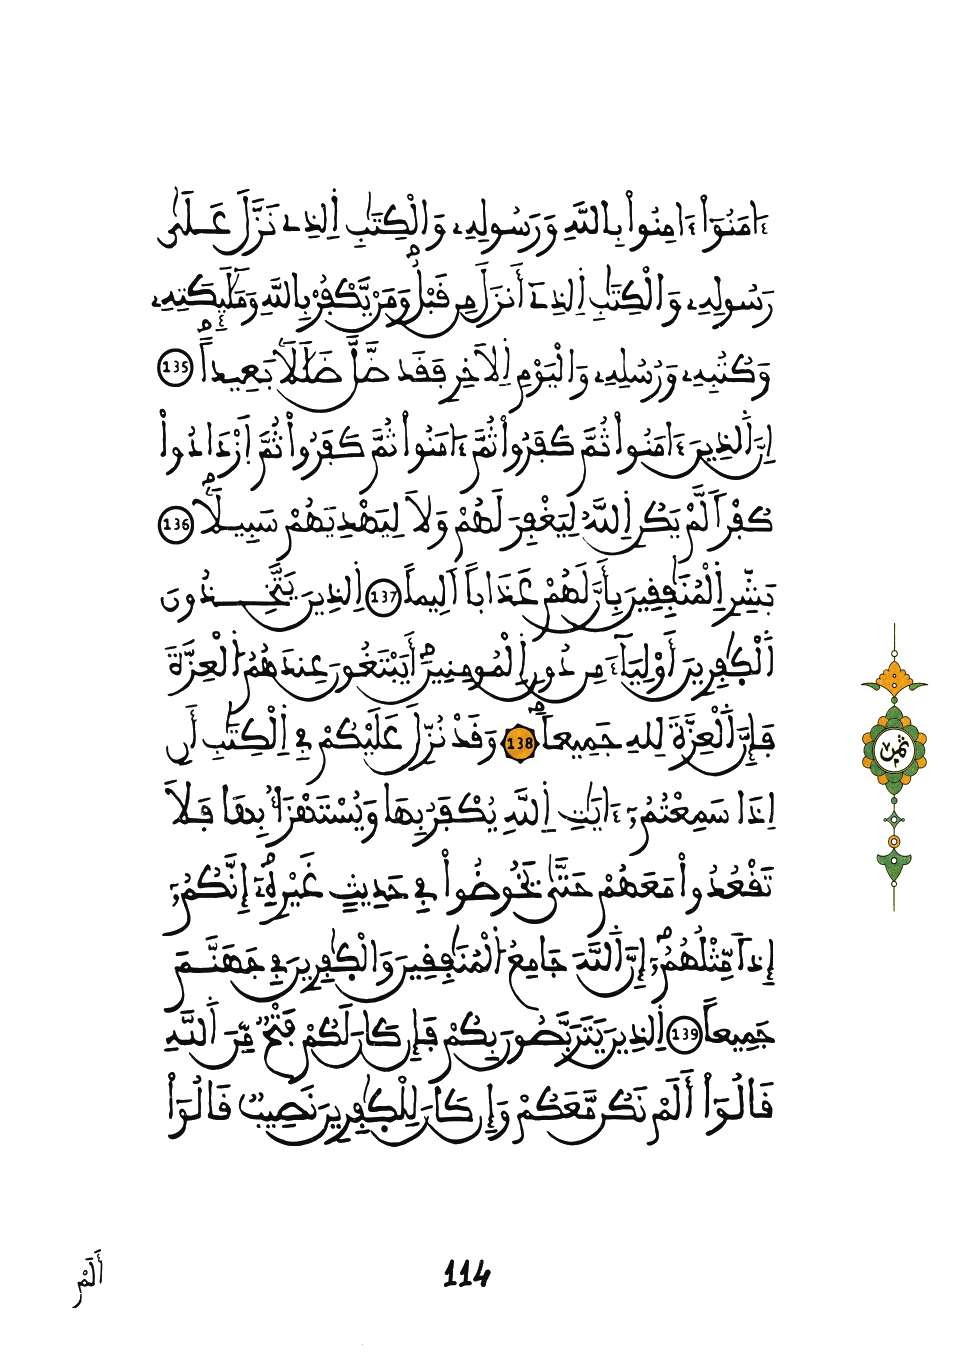 ءَامَنُوٓاْ ءَامِنُواْ بِاللَّهِ وَرَسُولِهِۦ وَالْكِتَٰبِ اِلذِے نَزَّلَ عَلَىٰ
رَسُولِهِۦ وَالْكِتَٰبِ اِلذِےٓ أَنزَلَ مِن قَبْلُۖ وَمَنْ يَّكْفُرْ بِاللَّهِ وَمَلَٰٓئِكَتِهِۦ
وَكُتُبِهِۦ وَرُسُلِهِۦ وَالْيَوْمِ اِلَاخِرِ فَقَد ضَّلَّ ضَلَٰلاَۢ بَعِيداًۖ 135
إِنَّ اَلذِينَ ءَامَنُواْ ثُمَّ كَفَرُواْ ثُمَّ ءَامَنُواْ ثُمَّ كَفَرُواْ ثُمَّ اَزْدَادُواْ
كُفْراً لَّمْ يَكُنِ اِللَّهُ لِيَغْفِرَ لَهُمْ وَلَا لِيَهْدِيَهُمْ سَبِيلاًۖ 136
بَشِّرِ اِلْمُنَٰفِقِينَ بِأَنَّ لَهُمْ عَذَاباً اَلِيماً 137 اِلذِينَ يَتَّخِذُونَ
اَلْكٰفِرِينَ أَوْلِيَآءَ مِن دُونِ اِلْمُومِنِينَۖ أَيَبْتَغُونَ عِندَهُمُ اُلْعِزَّةَ
فَإِنَّ اَلْعِزَّةَ لِلهِ جَمِيعاًۖ 138 وَقَدْ نُزِّلَ عَلَيْكُمْ فِے اِلْكِتَٰبِ أَنِ
اِذَا سَمِعْتُمُۥٓ ءَايَٰتِ اِللَّهِ يُكْفَرُ بِهَا وَيُسْتَهْزَأُ بِهَا فَلَا
تَقْعُدُواْ مَعَهُمْ حَتَّىٰ يَخُوضُواْ فِے حَدِيثٍ غَيْرِهِۦٓۖ إِنَّكُمُۥٓ
إِذاً مِّثْلُهُمُۥٓۖ إِنَّ اَللَّهَ جَامِعُ اُلْمُنَٰفِقِينَ وَالْكٰفِرِينَ فِے جَهَنَّمَ
جَمِيعاً 139 اِلذِينَ يَتَرَبَّصُونَ بِكُمْ فَإِن كَانَ لَكُمْ فَتْحٌ مِّنَ اَللَّهِ
قَالُوٓاْ أَلَمْ نَكُن مَّعَكُمْ وَإِن كَانَ لِلْكٰفِرِينَ نَصِيبٌ قَالُوٓاْ
ثمن
أَلَمْ
114